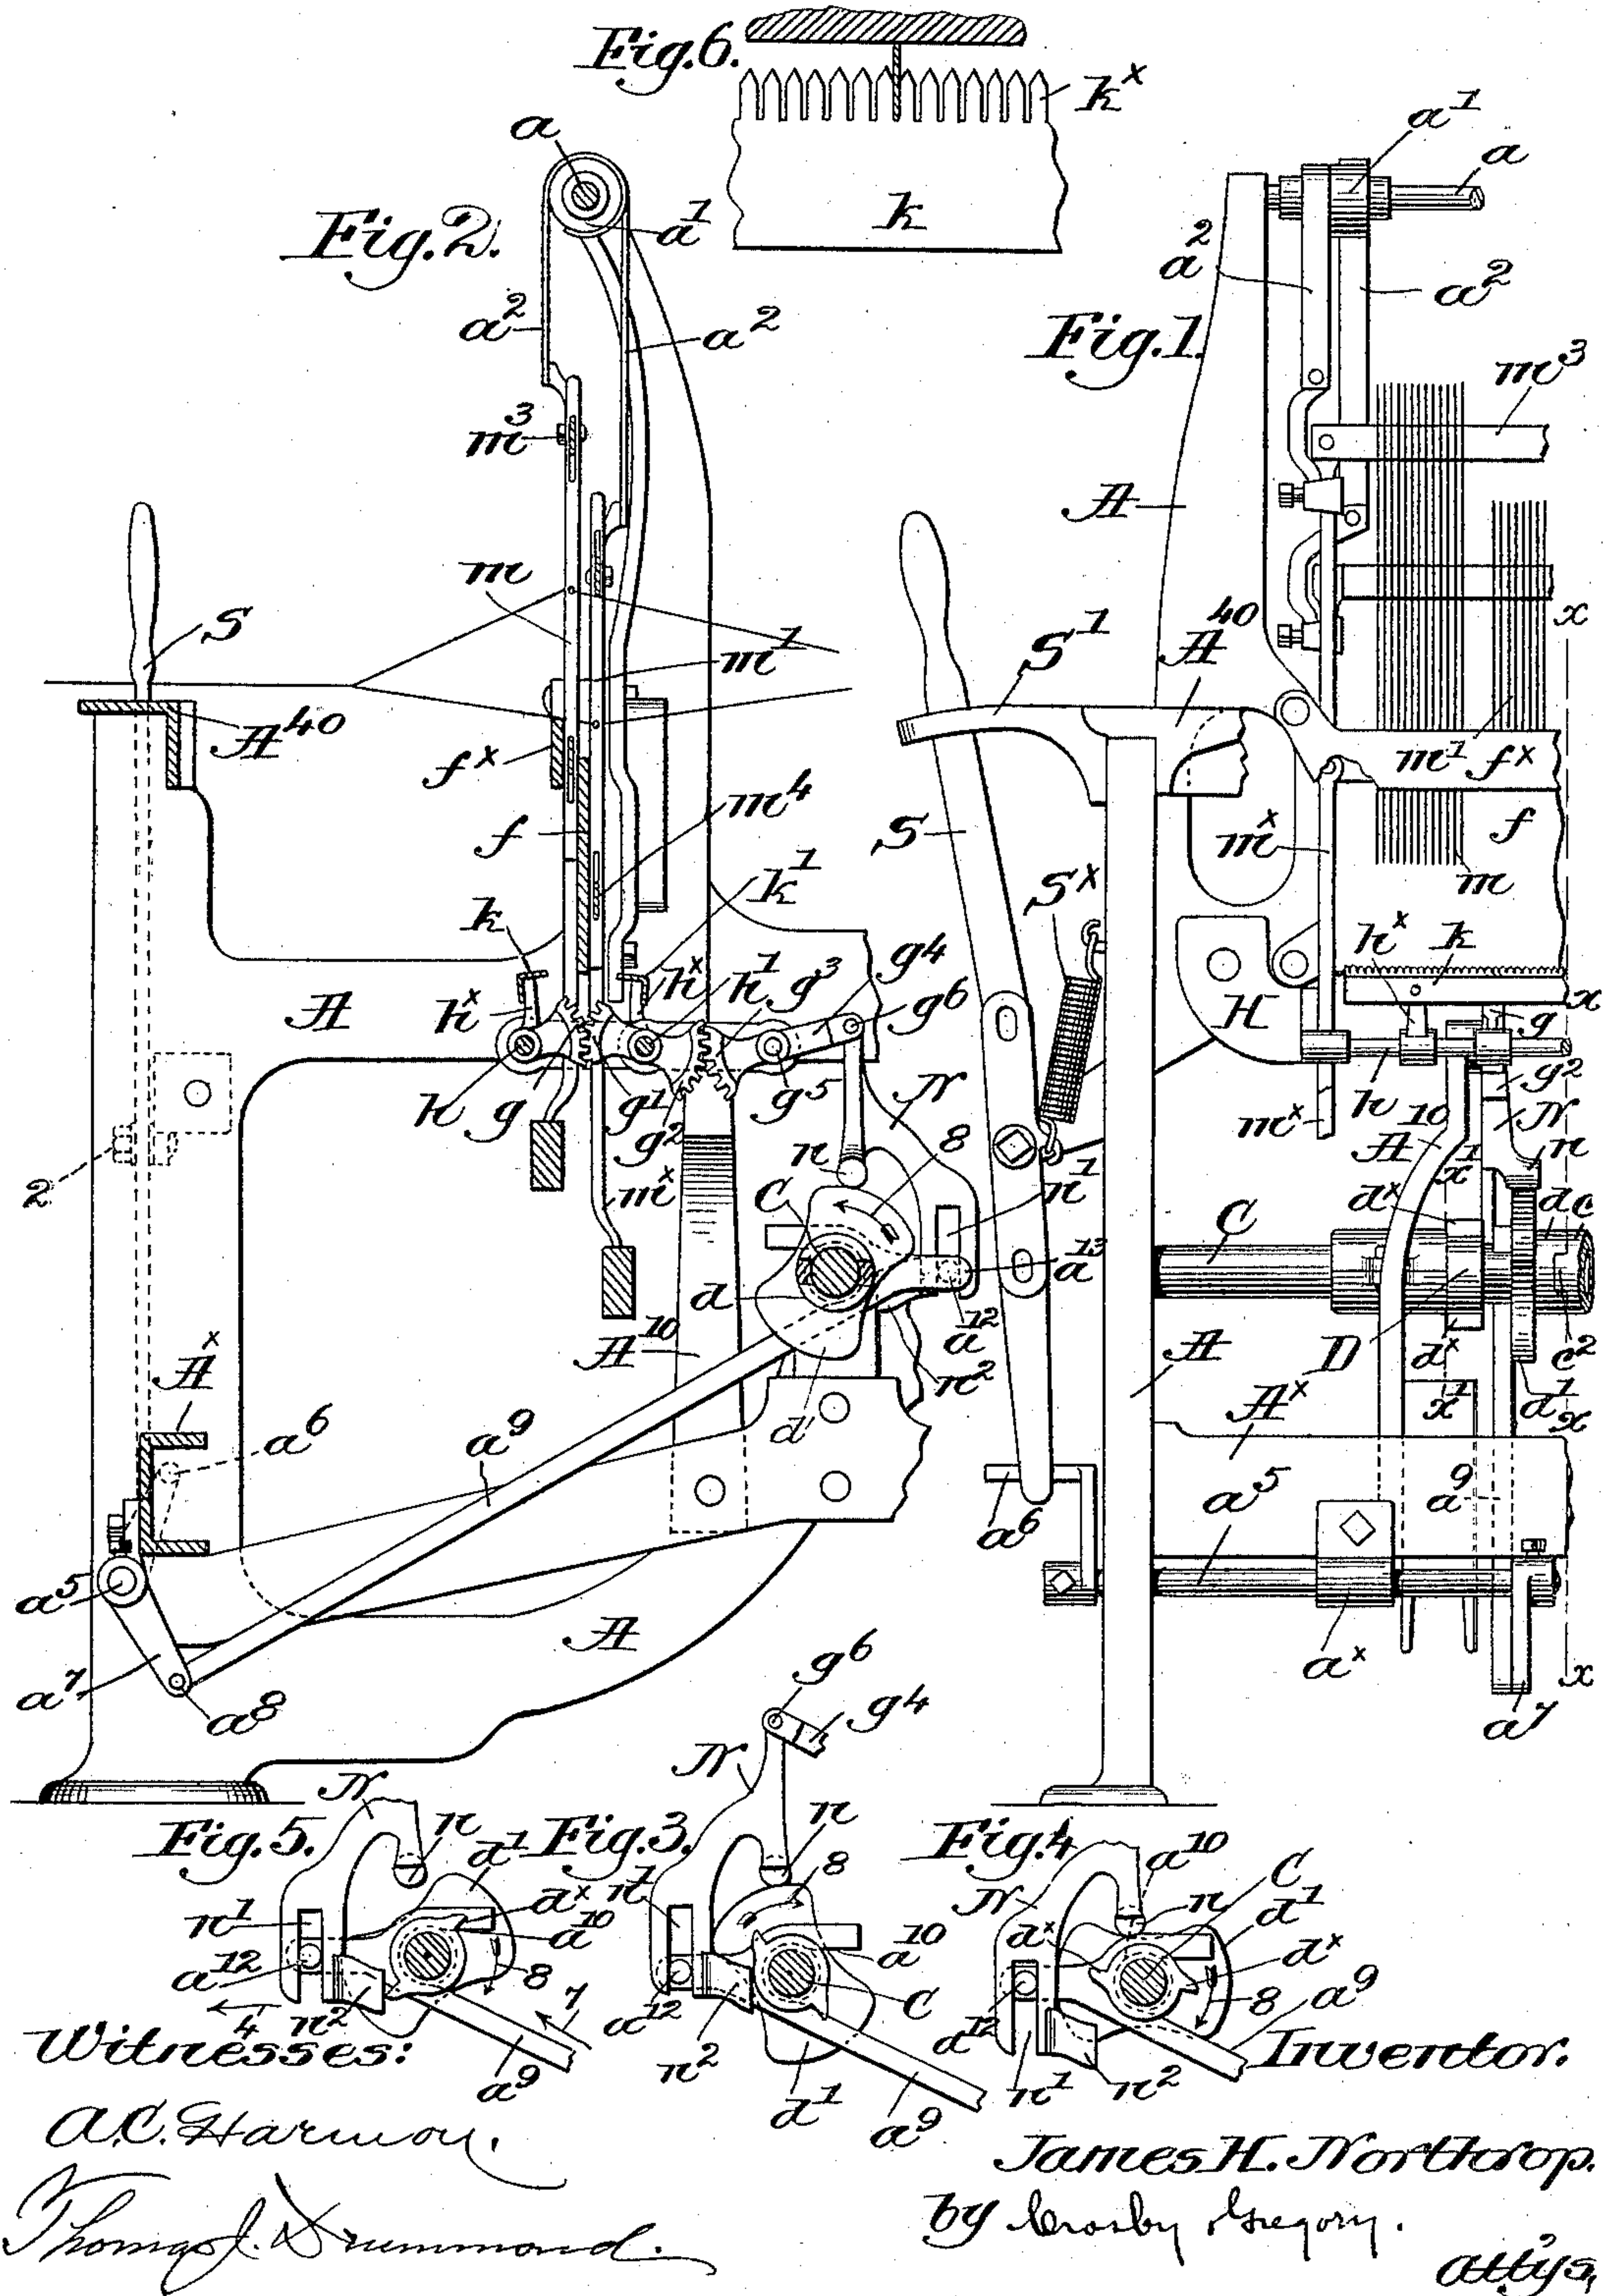 Fig. 6.
kˣ
k
a
a¹
Fig. 2.
a²
a²
m³
m
S
m¹
A⁴⁰
fˣ
m⁴
f
k¹
k
hˣ
hˣ
h¹
g³
g⁴
g⁶
A
h
g
g¹
g²
g⁵
N
2
mˣ
n
8
C
n¹
d
a¹³
a¹²
A¹⁰
n²
d'
Aˣ
a⁶
a⁹
a⁵
A
a⁷
a⁸
a¹
a
a²
a²
Fig. 1.
m³
A
x
S¹
A⁴⁰
m¹
fˣ
S
mˣ
f
m
Sˣ
hˣ
k
H
x
g
h
g²
mˣ
A¹⁰
N
x¹
n
dˣ
d
c
C
D
dˣ
c²
A
x¹
d¹
x
Aˣ
a⁵
a⁹
a⁶
aˣ
x
a⁷
Fig. 5.
N
n
d¹
dˣ
n¹
a¹⁰
a¹²
8
4
n²
7
a⁹
Fig. 3.
g⁶
g⁴
N
n
8
n¹
a¹⁰
a¹²
C
n²
d¹
a⁹
Fig. 4
a¹⁰
C
N
n
d¹
dˣ
dˣ
8
a⁹
a¹²
n¹
n²
Witnesses:
A.C. Harmon.
Thomas J. Drummond.
Inventor.
James H. Northrop.
by Crosby Gregory.
attys,